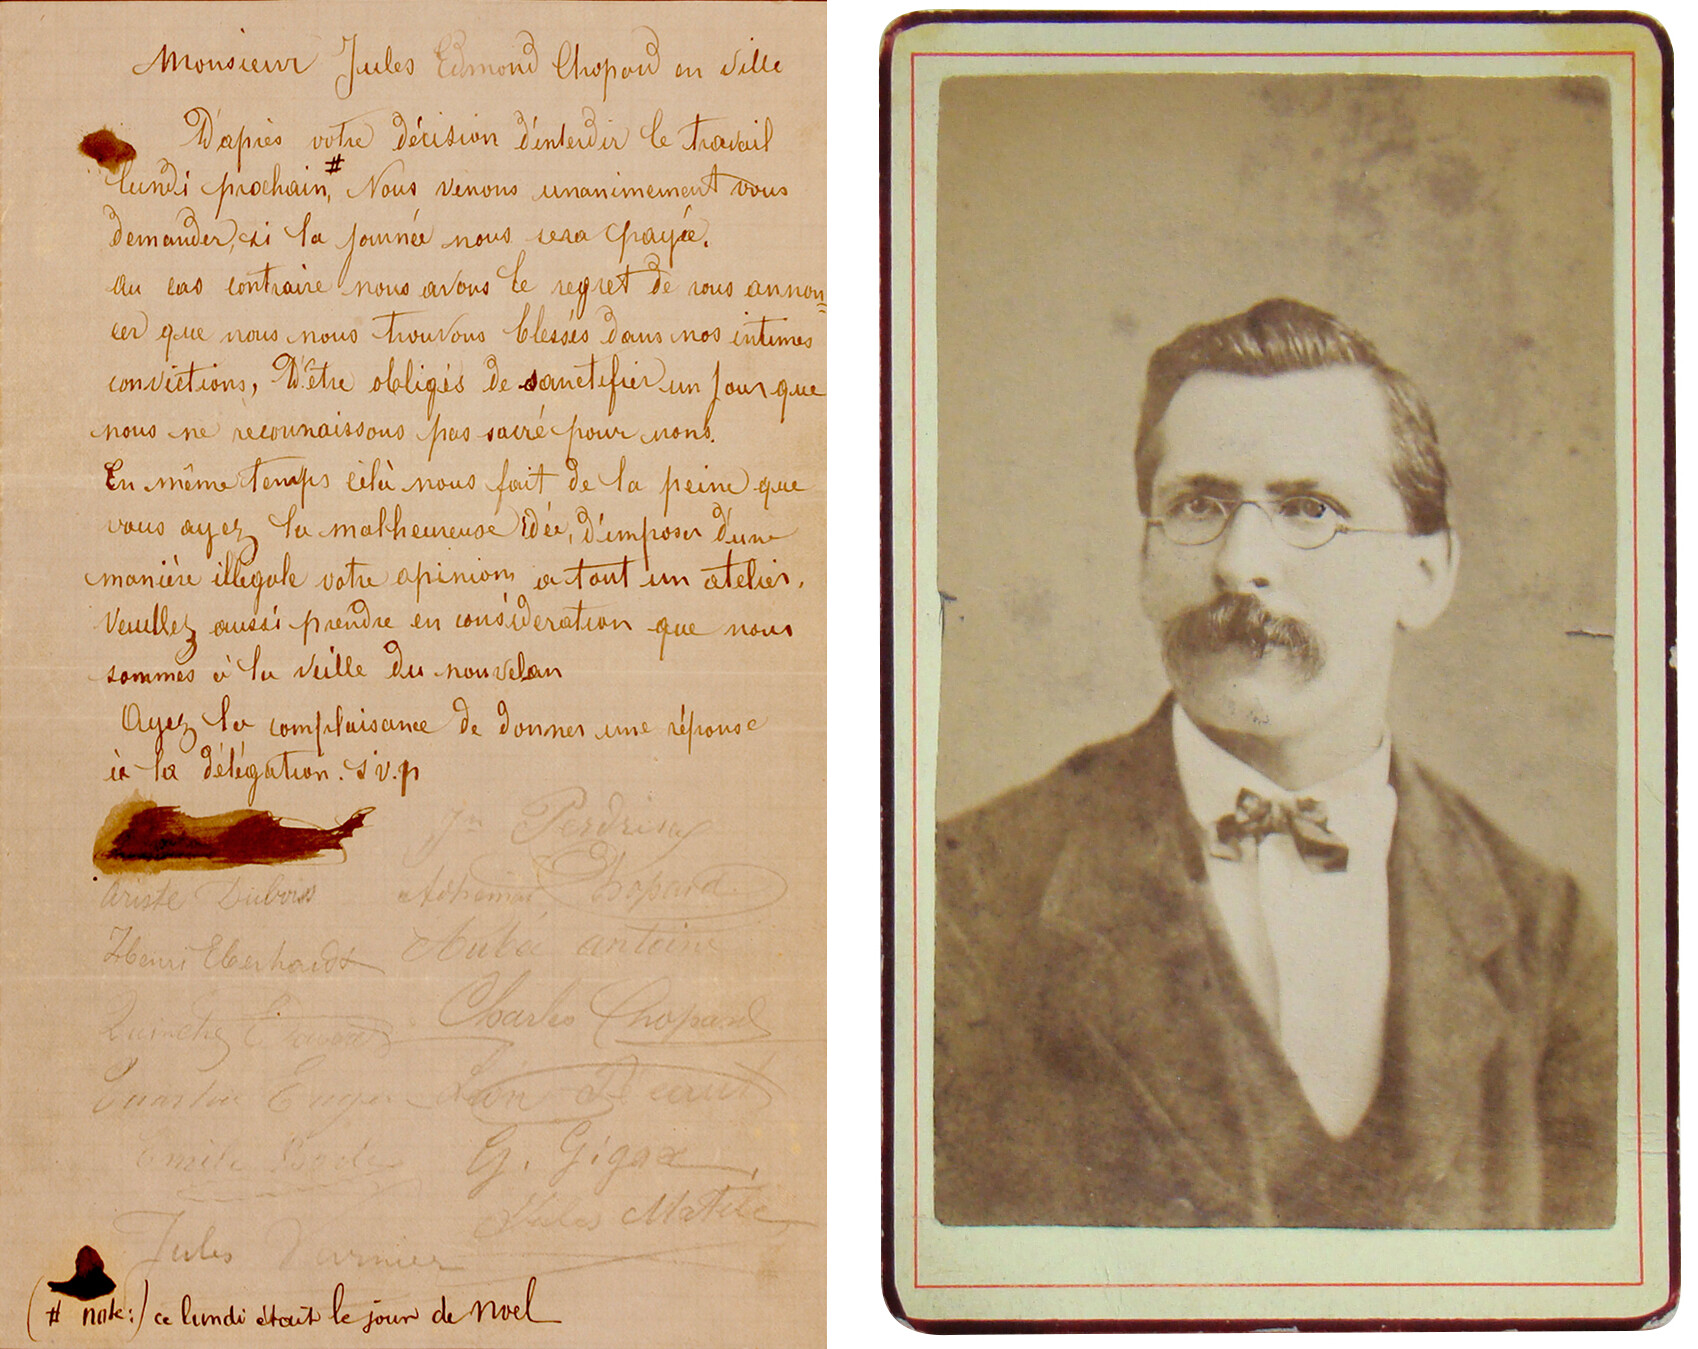 Monsieur Jules Edmond Chopard en ville
D'après votre décision d'interdir le travail
lundi prochain,# Nous venons unanimement vous
demander, si la journée nous sera payée.
au cas contraire nous avons le regret de vous annon=
cer que nous nous trouvons blessés dans nos intimes
convictions, D'être obligés de sanctifier un jour que
nous ne reconnaissons pas sacré pour nous.
En même temps celà nous fait de la peine que
vous ayez la malheureuse idée, d'imposer d'une
manière illégale votre opinion a tout un atelier.
Veuillez aussi prendre en considération que nous
sommes à la veille du nouvelan
Ayez la complaisance de donner une réponse
à la délégation. s v.p
Perdrix
Ariste Dubois
Chopard
Henri Eberhardt
antoine
Charles Chopard
Emile
G. Gigax
Jules Matile
Jules
(# note:) ce lundi était le jour de Noel